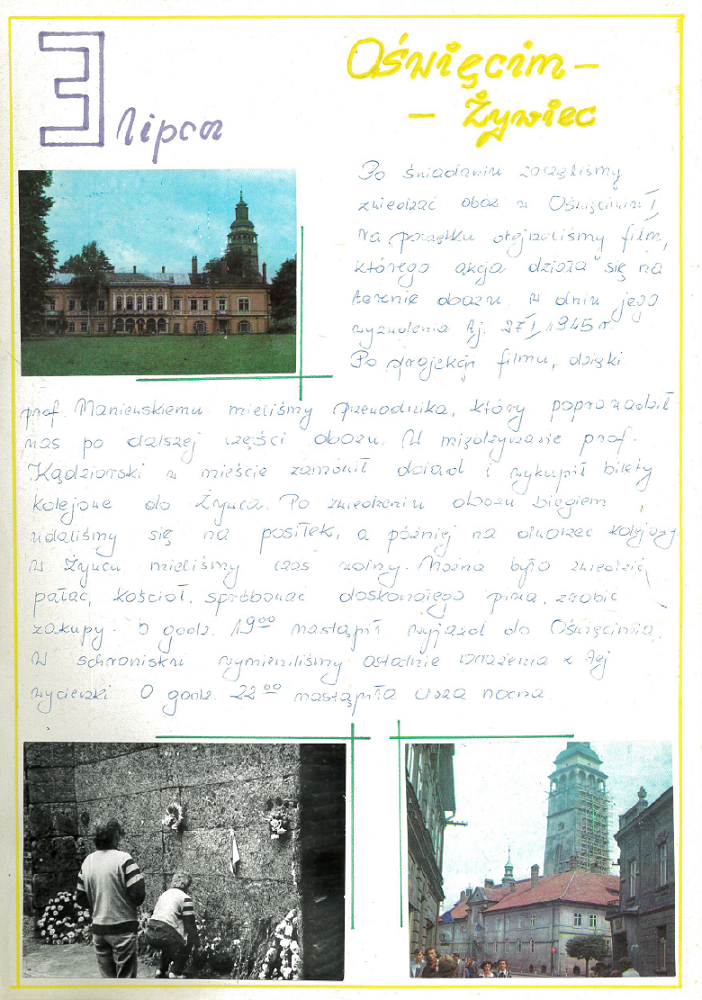 3 lipca
Oświęcim -
- Żywiec
Po śniadaniu zaczęliśmy
zwiedzać obóz w Oświęcimiu I
Na początku obejrzeliśmy film,
którego akcja działa się na
terenie obozu w dniu jego
wyzwolenia tj. 27 I 1945 r.
Po projekcji filmu, dzięki
prof. Maniewskiemu mieliśmy przewodnika, który poprowadził
nas po dalszej części obozu. W międzyczasie prof.
Kądziorski w mieście zamówił obiad i wykupił bilety
kolejowe do Żywca. Po zwiedzeniu obozu biegiem
udaliśmy się na posiłek, a później na dworzec kolejowy
W Żywcu mieliśmy czas wolny. Można było zwiedzić
pałac, kościół, spróbować doskonałego piwa, zrobić
zakupy. O godz. 19⁰⁰ nastąpił wyjazd do Oświęcimia.
W schronisku wymieniliśmy ostatnie wrażenia z tej
wycieczki O godz. 22⁰⁰ nastąpiła cisza nocna.